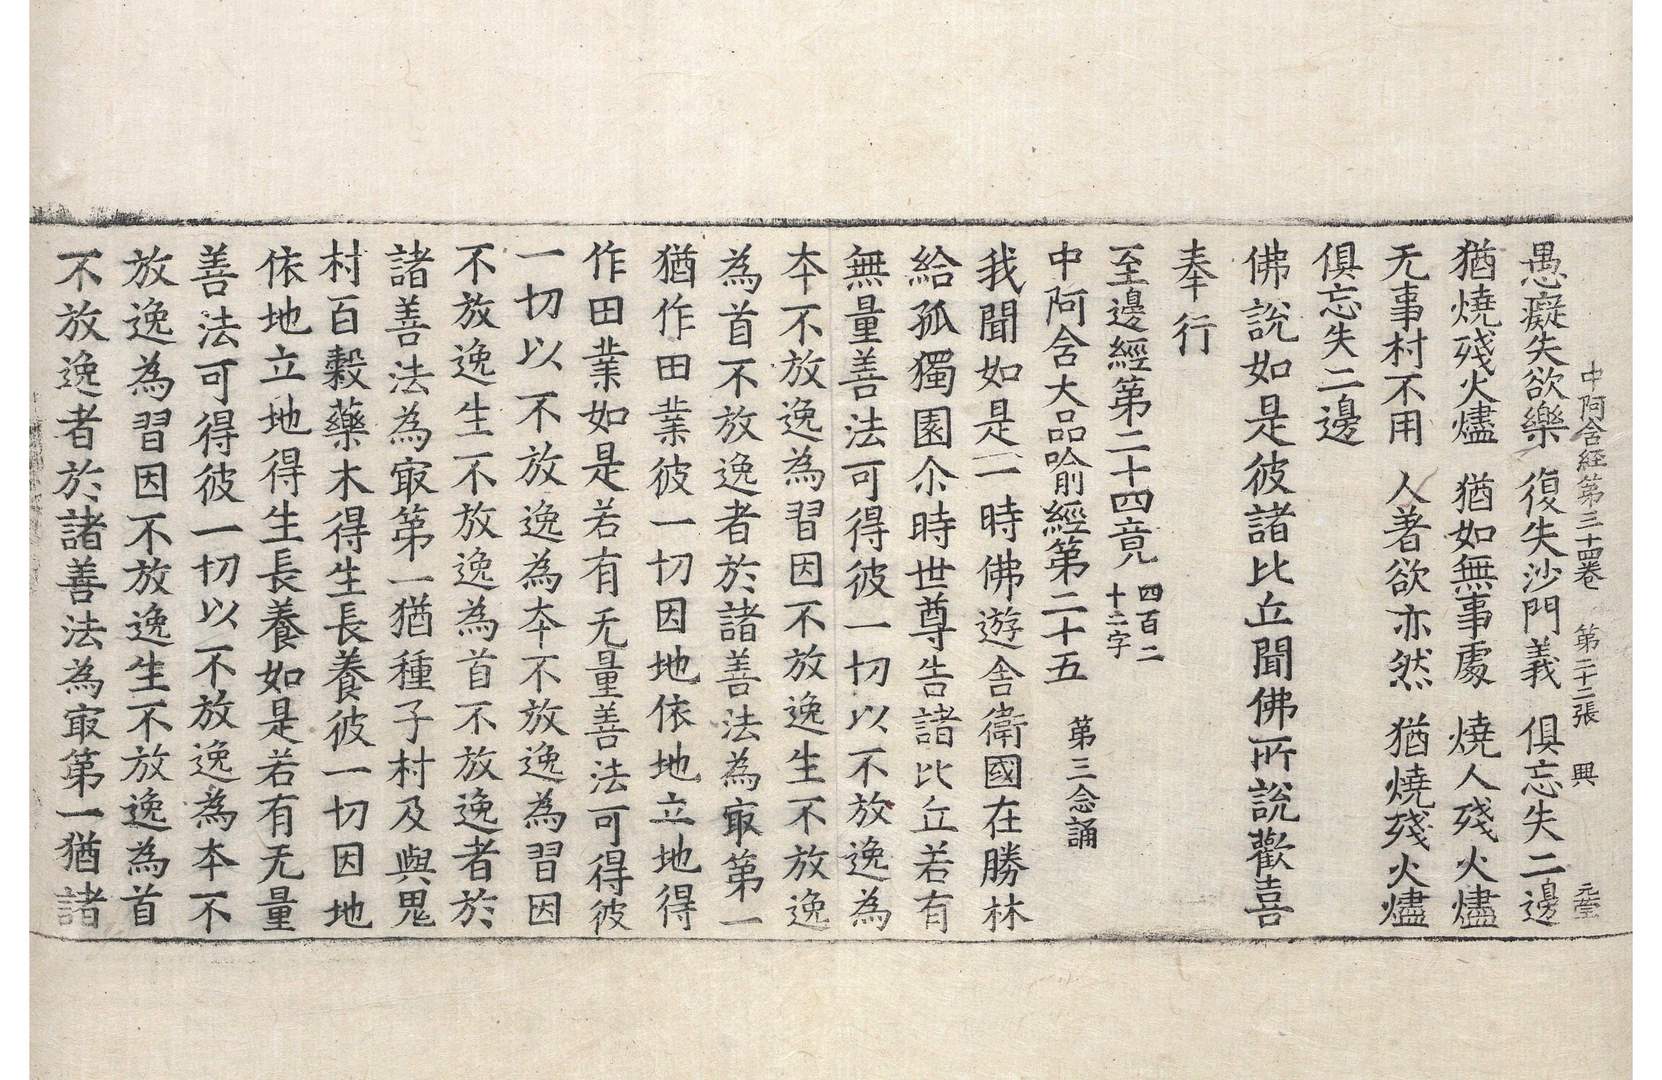 中阿含経第三十四卷 第二十二張 興
愚癡失欲樂 復失沙門義 俱忘失二邊
猶燒殘火燼 猶如無事處 燒人殘火燼
无事村不用 人著欲亦然 猶燒殘火燼
俱忘失二邊
佛說如是彼諸比丘聞佛所說歡喜
奉行
至邊經第二十四竟 四百二十二字
中阿含大品喻經第二十五 第三念誦
我聞如是一時佛遊舍衛國在勝林
給孤獨園尒時世尊告諸比丘若有
無量善法可得彼一切以不放逸為
夲不放逸為習因不放逸生不放逸
為首不放逸者於諸善法為㝡第一
猶作田業彼一切因地依地立地得
作田業如是若有无量善法可得彼
一切以不放逸為夲不放逸為習因
不放逸生不放逸為首不放逸者於
諸善法為㝡第一猶種子村及與鬼
村百穀藥木得生長養彼一切因地
依地立地得生長養如是若有无量
善法可得彼一切以不放逸為夲不
放逸為習因不放逸生不放逸為首
不放逸者於諸善法為㝡第一猶諸